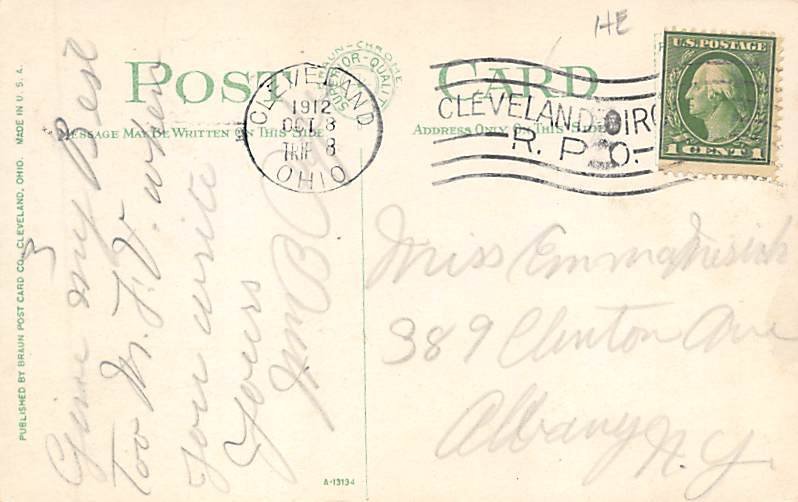 HE
POST CARD
MESSAGE MAY BE WRITTEN ON THIS SIDE
ADDRESS ONLY ON THIS SIDE
CLEVELAND
1912
OCT 8
TRIP 8
OHIO
CLEVELAND CIRC
R. P. O.
U.S. POSTAGE
1 CENT 1
Give my Best
too M. F. V. when
you write
Yours
Wm B
Miss Emma
389 Clinton Ave
Albany N.Y.
PUBLISHED BY BRAUN POST CARD CO., CLEVELAND, OHIO. MADE IN U. S. A.
A-13134